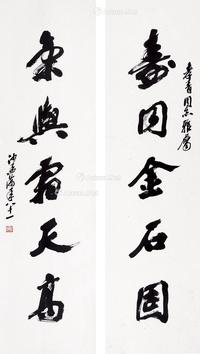 春青同志雅属
寿同金石固
气与霜天高
沙孟海年八十一